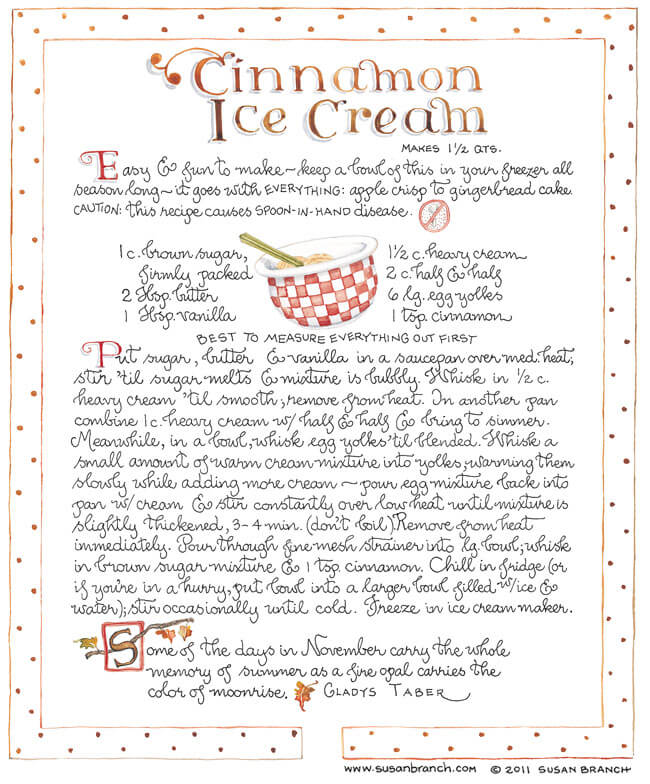 Cinnamon
Ice Cream
MAKES 1 1/2 QTS.
Easy & fun to make ~ keep a bowl of this in your freezer all
season long ~ it goes with EVERYTHING: apple crisp to gingerbread cake.
CAUTION: this recipe causes SPOON-IN-HAND disease.
1 c. brown sugar,
firmly packed
2 Tbsp. butter
1 Tbsp. vanilla
1 1/2 c. heavy cream
2 c. half & half
6 lg. egg yolks
1 tsp. cinnamon
BEST TO MEASURE EVERYTHING OUT FIRST
Put sugar, butter & vanilla in a saucepan over med. heat;
stir 'til sugar melts & mixture is bubbly. Whisk in 1/2 c.
heavy cream 'til smooth; remove from heat. In another pan
combine 1 c. heavy cream w/ half & half & bring to simmer.
Meanwhile, in a bowl, whisk egg yolks 'til blended. Whisk a
small amount of warm cream mixture into yolks, warming them
slowly while adding more cream ~ pour egg mixture back into
pan w/ cream & stir constantly over low heat until mixture is
slightly thickened, 3-4 min. (don't boil). Remove from heat
immediately. Pour through fine mesh strainer into lg. bowl; whisk
in brown sugar mixture & 1 tsp. cinnamon. Chill in fridge (or
if you're in a hurry, put bowl into a larger bowl filled w/ice &
water); stir occasionally until cold. Freeze in ice cream maker.
Some of the days in November carry the whole
memory of summer as a fire opal carries the
color of moonrise. GLADYS TABER
www.susanbranch.com © 2011 SUSAN BRANCH